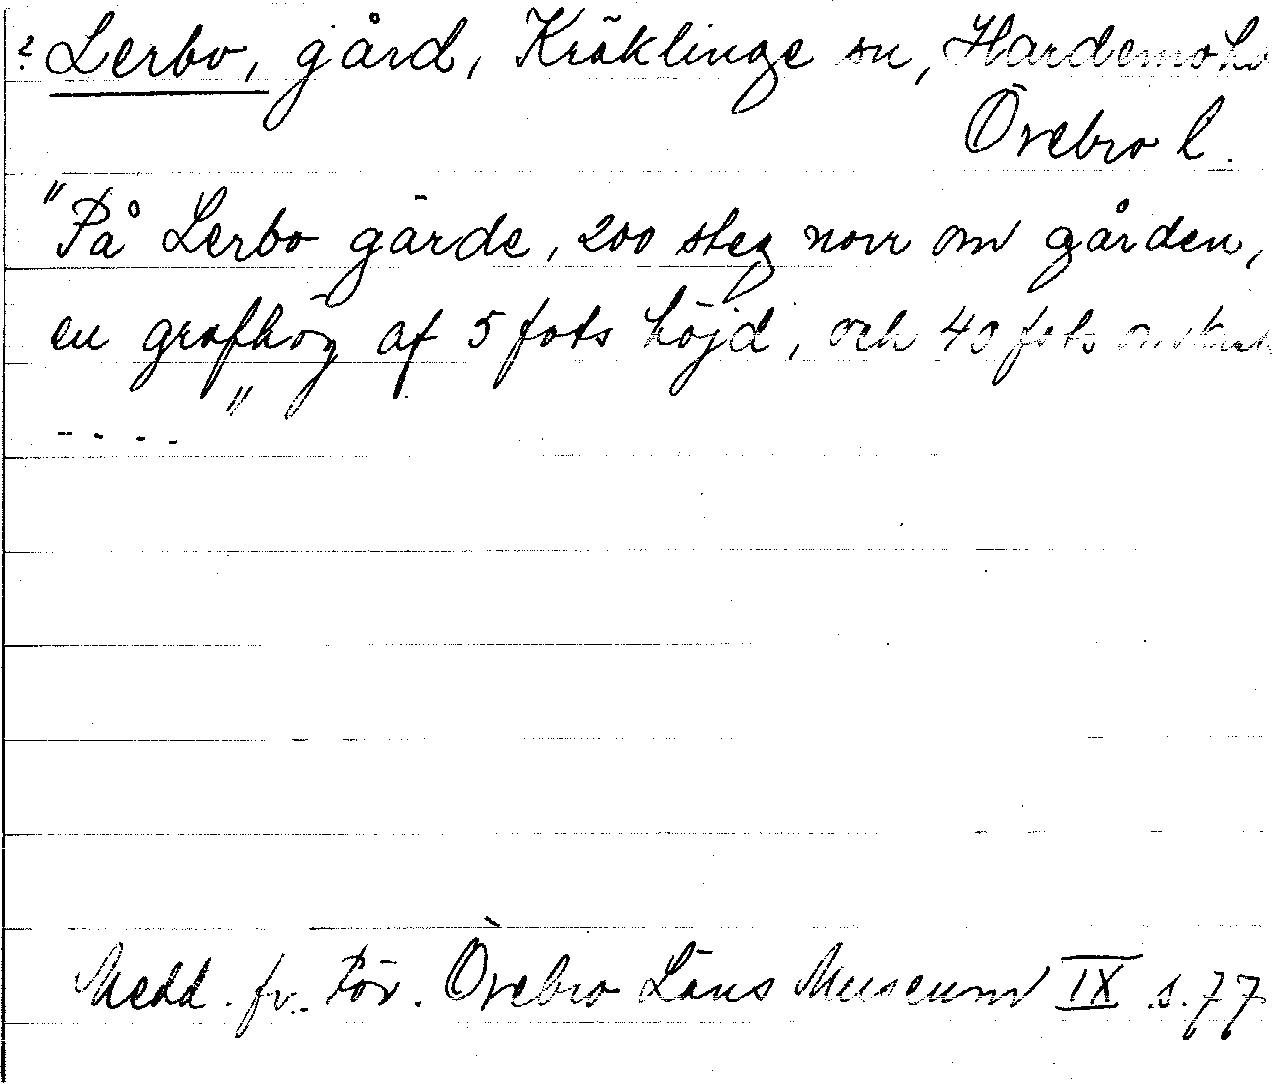 ? Lerbo, gård, Kräklinge sn, Hardemo hd
Örebro l.
"På Lerbo gärde, 200 steg norr om gården,
en grafhög af 5 fots höjd, och 40 fots
- - - - "
Medd. fr. För. Örebro Läns Museum IX s. 77